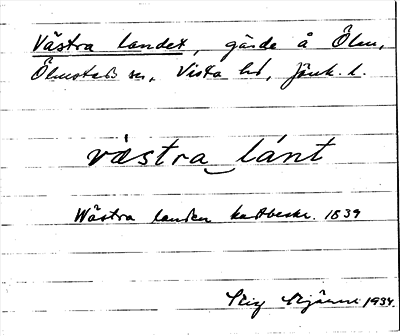 Västra landet, gärde å Ölm,
Ölmstads sn, Vista hd, Jönk. l.
västra lánt
Wästra landen kartbeskr. 1839
Stig 1934.